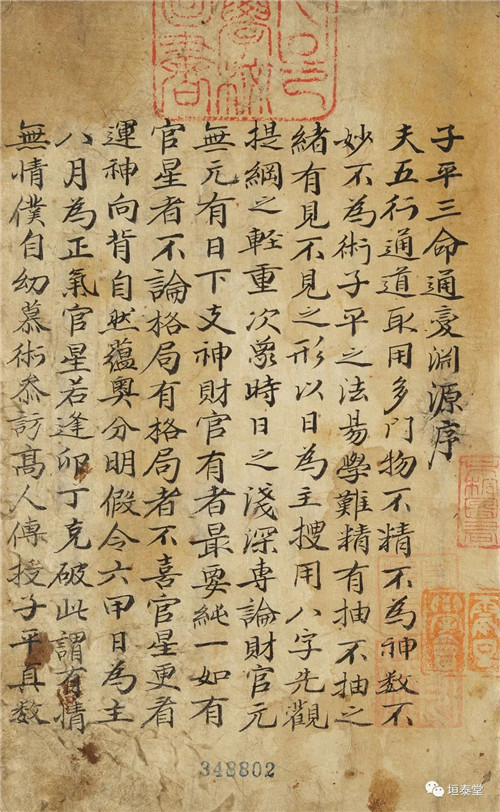 子平三命通變淵源序
夫五行通道取用多門物不精不為神数不
妙不為術子平之法昜學難精有抽不抽之
緒有見不見之形以日為主搜用八字先觀
提綱之輕重次察時日之淺深專論財官元
無元有日下支神財官有者最要純一如有
官星者不論格局有格局者不喜官星更看
運神向背自然蘊奧分明假令六甲日為主
八月為正氣官星若逢卯丁克破此謂有情
無情僕自幼慕術叅訪髙人傳授子平真数
348802
垣泰堂